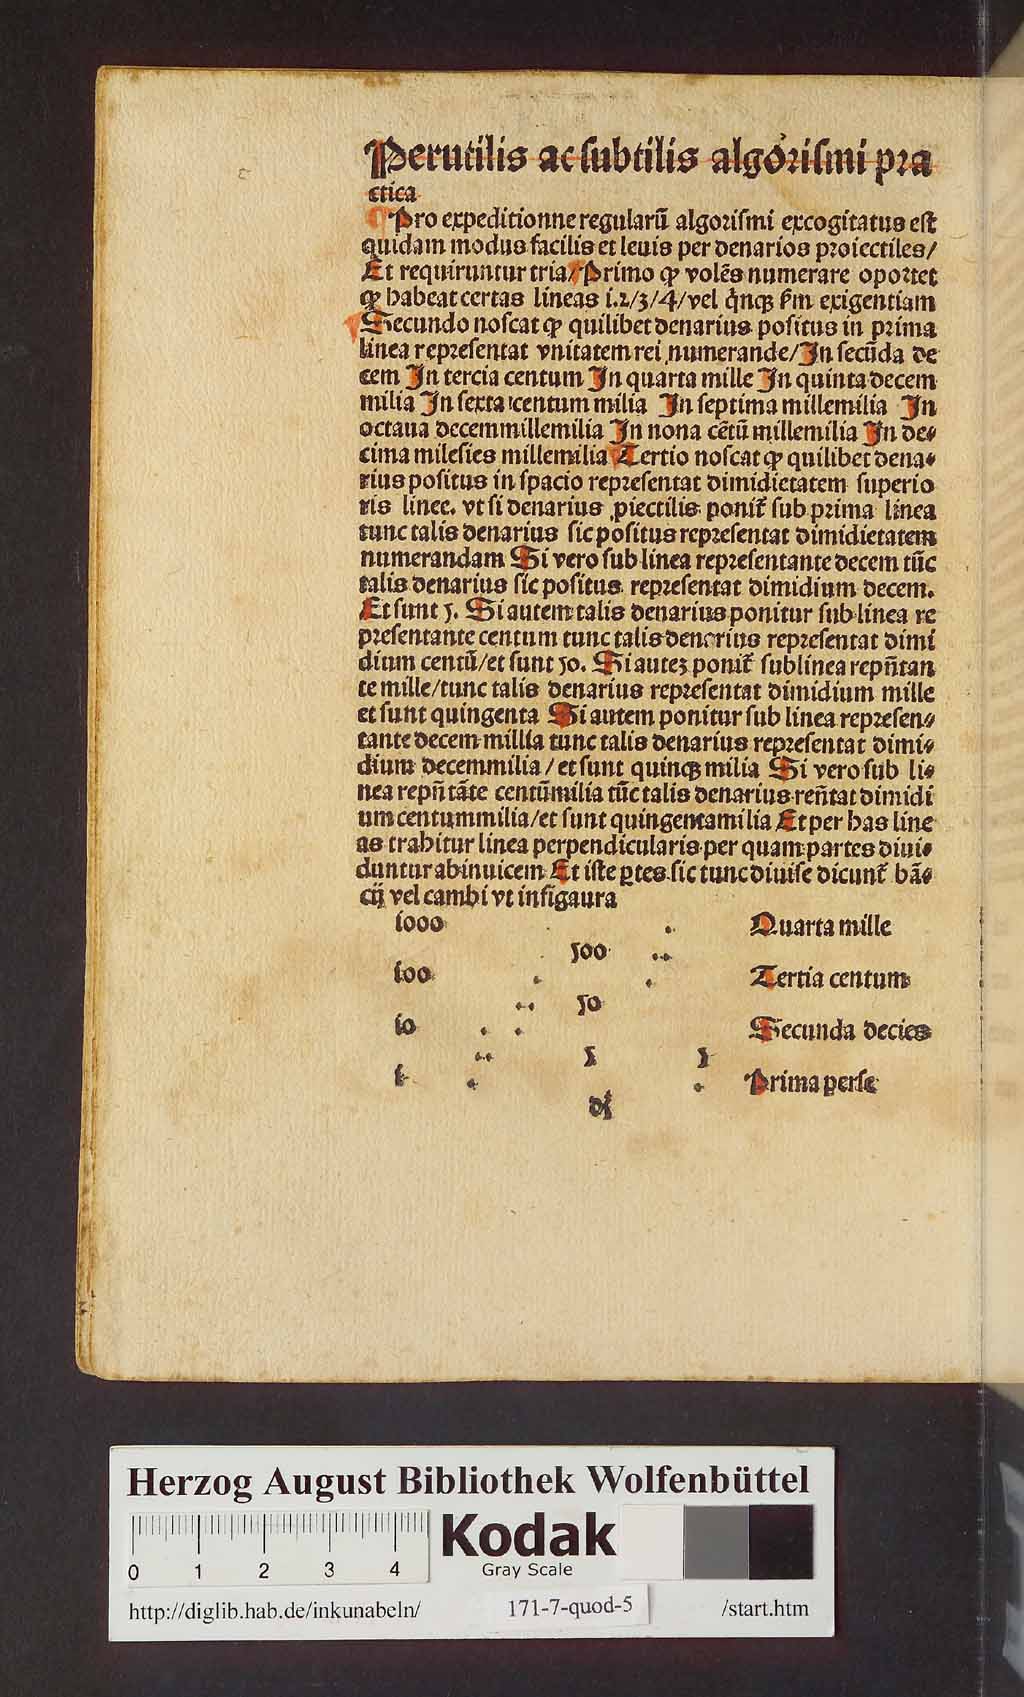 Perutilis ac subtilis algorismi pra
ctica
Pro expeditionne regularū algorismi excogitatus est
quidam modus facilis et leuis per denarios proiectiles/
Et requiruntur tria/ Primo ꝙ volēs numerare oportet
ꝙ habeat certas lineas i.2/3/4/vel q̇nqꝫ ẜm exigentiam
Secundo noscat ꝙ quilibet denarius positus in prima
linea representat vnitatem rei numerande/ In secūda de
cem In tercia centum In quarta mille In quinta decem
milia In sexta centum milia In septima millemilia In
octaua decemmillemilia In nona cētū millemilia In de⸗
cima milesies millemilia Tertio noscat ꝙ quilibet dena⸗
rius positus in spacio representat dimidietatem superio
ris linee. vt si denarius ꝓiectilis ponit̄ sub prima linea
tunc talis denarius sic positus representat dimidietatem
numerandam Si vero sub linea representante decem tūc
talis denarius sic positus representat dimidium decem.
Et sunt 5. Si autem talis denarius ponitur sub linea re
presentante centum tunc talis denarius representat dimi
dium centū/et sunt 50. Si auteꝫ ponit̄ sub linea repn̄tan
te mille/tunc talis denarius representat dimidium mille
et sunt quingenta Si autem ponitur sub linea represen⸗
tante decem millia tunc talis denarius representat dimi⸗
dium decemmilia/et sunt quinqꝫ milia Si vero sub li⸗
nea repn̄ tāte centūmilia tūc talis denarius ren̄tat dimidi
um centummilia/et sunt quingentamilia Et per has line
as trahitur linea perpendicularis per quam partes diui⸗
duntur abinuicem Et iste ꝑtes sic tunc diuise dicunt̄ bā⸗
cij vel cambi vt infigaura
1000 Quarta mille
500
100 Tertia centum
50
10 Secunda decies
5 5
1 Prima perse
di
Herzog August Bibliothek Wolfenbüttel
0 1 2 3 4
Kodak
Gray Scale
http://diglib.hab.de/inkunabeln/ 171-7-quod-5 /start.htm